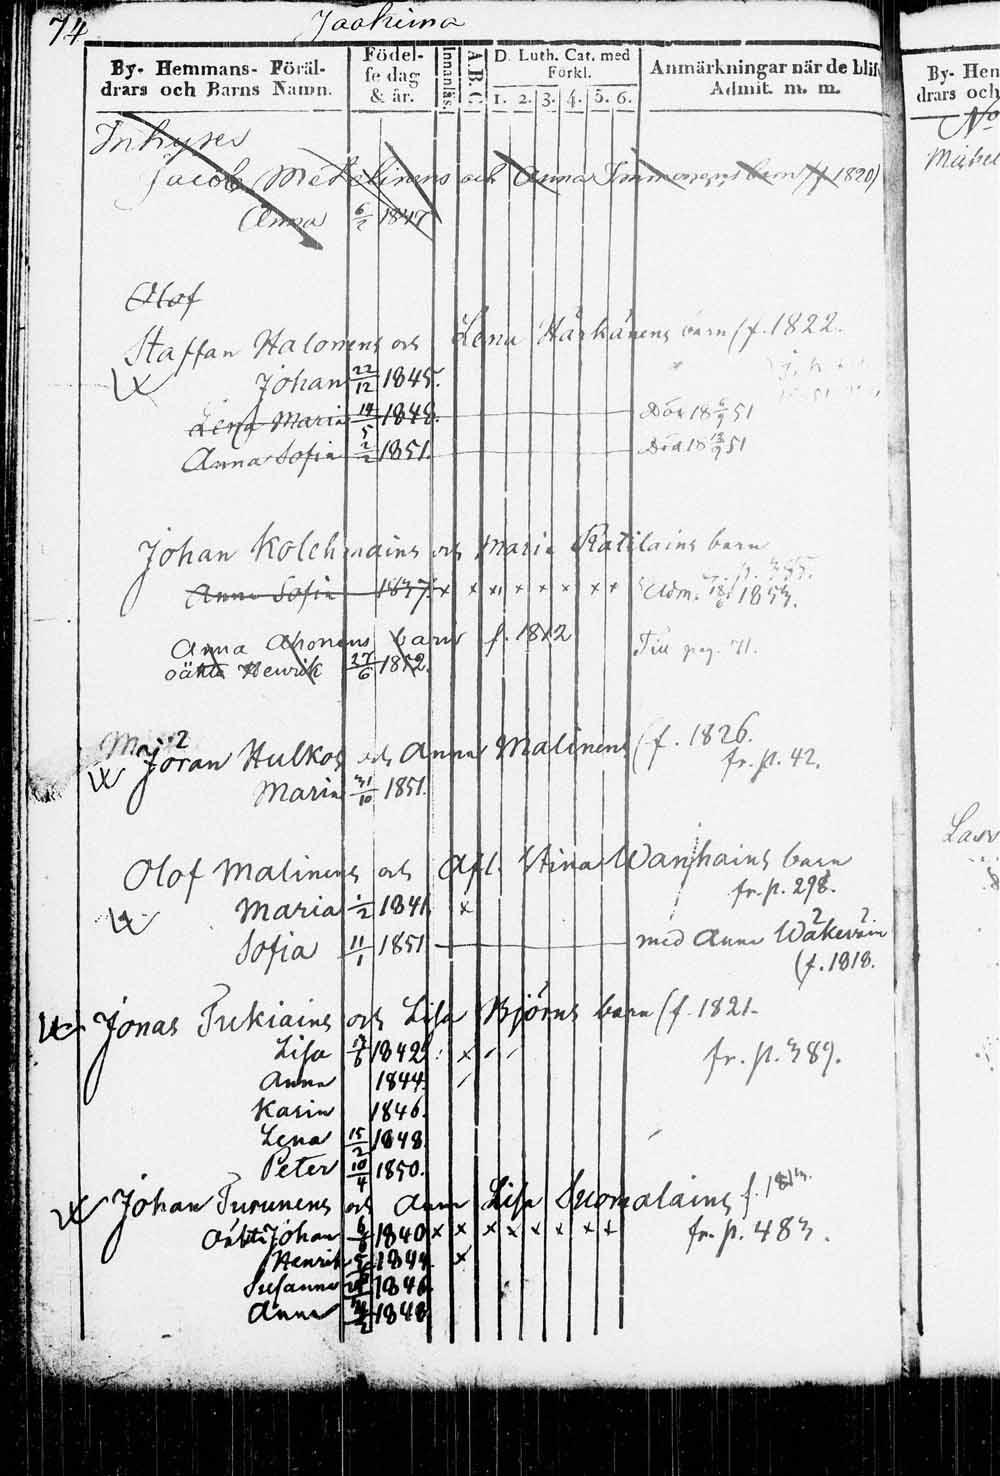 74
Jaakima
By- Hemmans- Föräl-
drars och Barns Namn.
Födel-
se dag
& år.
Innanläs.
A.B.C.
D. Luth. Cat. med
Forkl.
1. 2. 3. 4. 5. 6.
Anmärkningar när de blif
Admit. m. m.
Inhyses
Jacob och Anna barn (f 1820)
Anna 6/2 1847
Olof
Staffan Halonens och Lena Härkänens barn (f. 1822.
Johan 22/12 1845.
Lena Maria 14/5 1848. Död 18 6/9 51
Anna Sofia 2/2 1851. Död 18 13/9 51
Johan Kolehmains och Maria Ratilains barn
Anna Sofia 1837. x x x x x x x x Adm. 18/6 1853.
Anna Ahonens barn f. 1812
oäkta Henrik 27/6 1852. Till pag. 71.
2
Jöran Hulkos och Anna Malinens (f. 1826.
fr. p. 42.
Maria 31/10 1851.
Olof Malinens och Afl. Stina Wanhains barn
fr. p. 298.
Maria 1841 x
Sofia 11/1 1851 med Anna
(f. 1818.
Jonas Tukiains och Lisa Björns barn (f. 1821.
Lisa 1842 x fr. p. 389.
Anna 1844.
Karin 1846.
Lena 15/2 1848
Peter 10/4 1850.
Johan Turunens och Anna Lisa Suomalains f.
Johan 1840 x x x x x x x x fr. p. 483.
Henrik 1844. x
Susanna 1846
Anna 1848
By- Hen
drars och
No
Michel